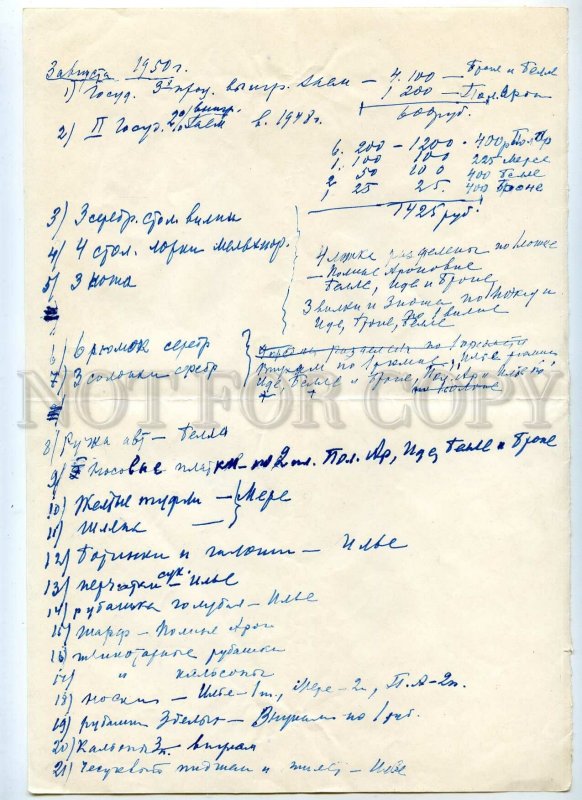 3 августа 1950г.
1) Госуд. 3% выигр. заем – 4.100 — Броне и Белле
1 200 — Пол. Арон
600 руб.
2) II Госуд. 2% выигр. Заем в 1948г.
6. 200 – 1200 · 400р Пол Ар
1. 100 100 225 Мере
2 50 100 400 Белле
1 25 25. 400 Броне
1425 руб.
3) 3 серебр. стол. вилки
4) 4 стол. ложки мельхиор.
5) 3 ножа
4 ложки разделены по 1 ложке
– Полине Ароновне
Белле, Иде и Броне,
3 вилки и 3 ножа по 1 ножу и
Иде, Броне, Белле 1 вилке
6) 6 рюмок серебр
7) 3 солонки серебр
внукам по 1 рюмке,
Иде Белле и Броне, Пол. Ар и Илье по
NOT FOR COPY
8) Ручка авт – Белла
9) Носовые платки – по 2 шт. Пол. Ар, Иде, Белле и Броне
10) Желтые туфли – Мере
11) Шляпа —
12) Ботинки и галоши – Илье
13) перчатки сук. – Илье
14) рубашка голубая – Илье
15) шарф – Полине Арон
16) трикотажные рубашки
17) " кальсоны
18) носки – Илье – 1п., Мере – 2п, П.А – 2п.
19) рубашки 3 белых – Внукам по 1 руб.
20) Кальсоны 3п. внукам
21) Чесучевый пиджак и жилет – Илье